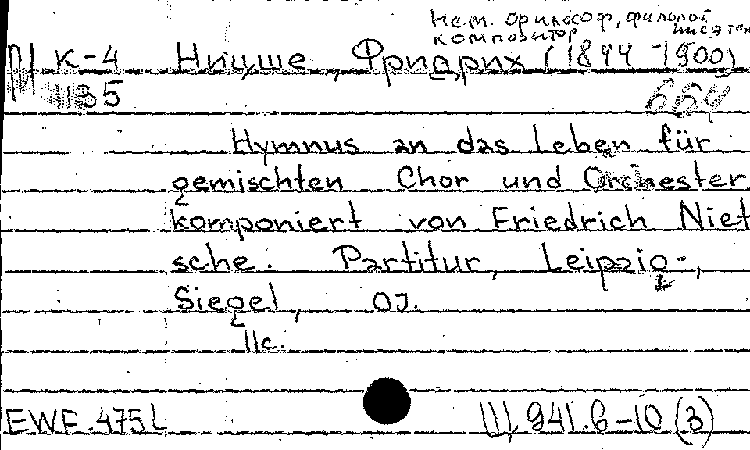 нем. философ, филолог
композитор писател
К-4 Ницше, Фридрих (1844-1900)
135 664
Hymnus an das Leben für
gemischten Chor und Orchester
komponiert von Friedrich Niet
sche. Partitur, Leipzig,
Siegel, OJ.
11c.
EWF.475L Ш 941.6-10(3)